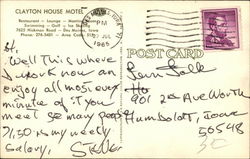 CLAYTON HOUSE MOTEL
Restaurant - Lounge - Meeting
Swimming - Golf - Ice Skating
7625 Hickman Road - Des Moines, Iowa
Phone: 276-5401 - Area Code
PM
1965
POST CARD
Well This where
I work now an
enjoy all most ever
minute of it you
meet so many people
71.50 is my weekly
Salary,
901 2nd Ave North
Humboldt, Iowa
50548